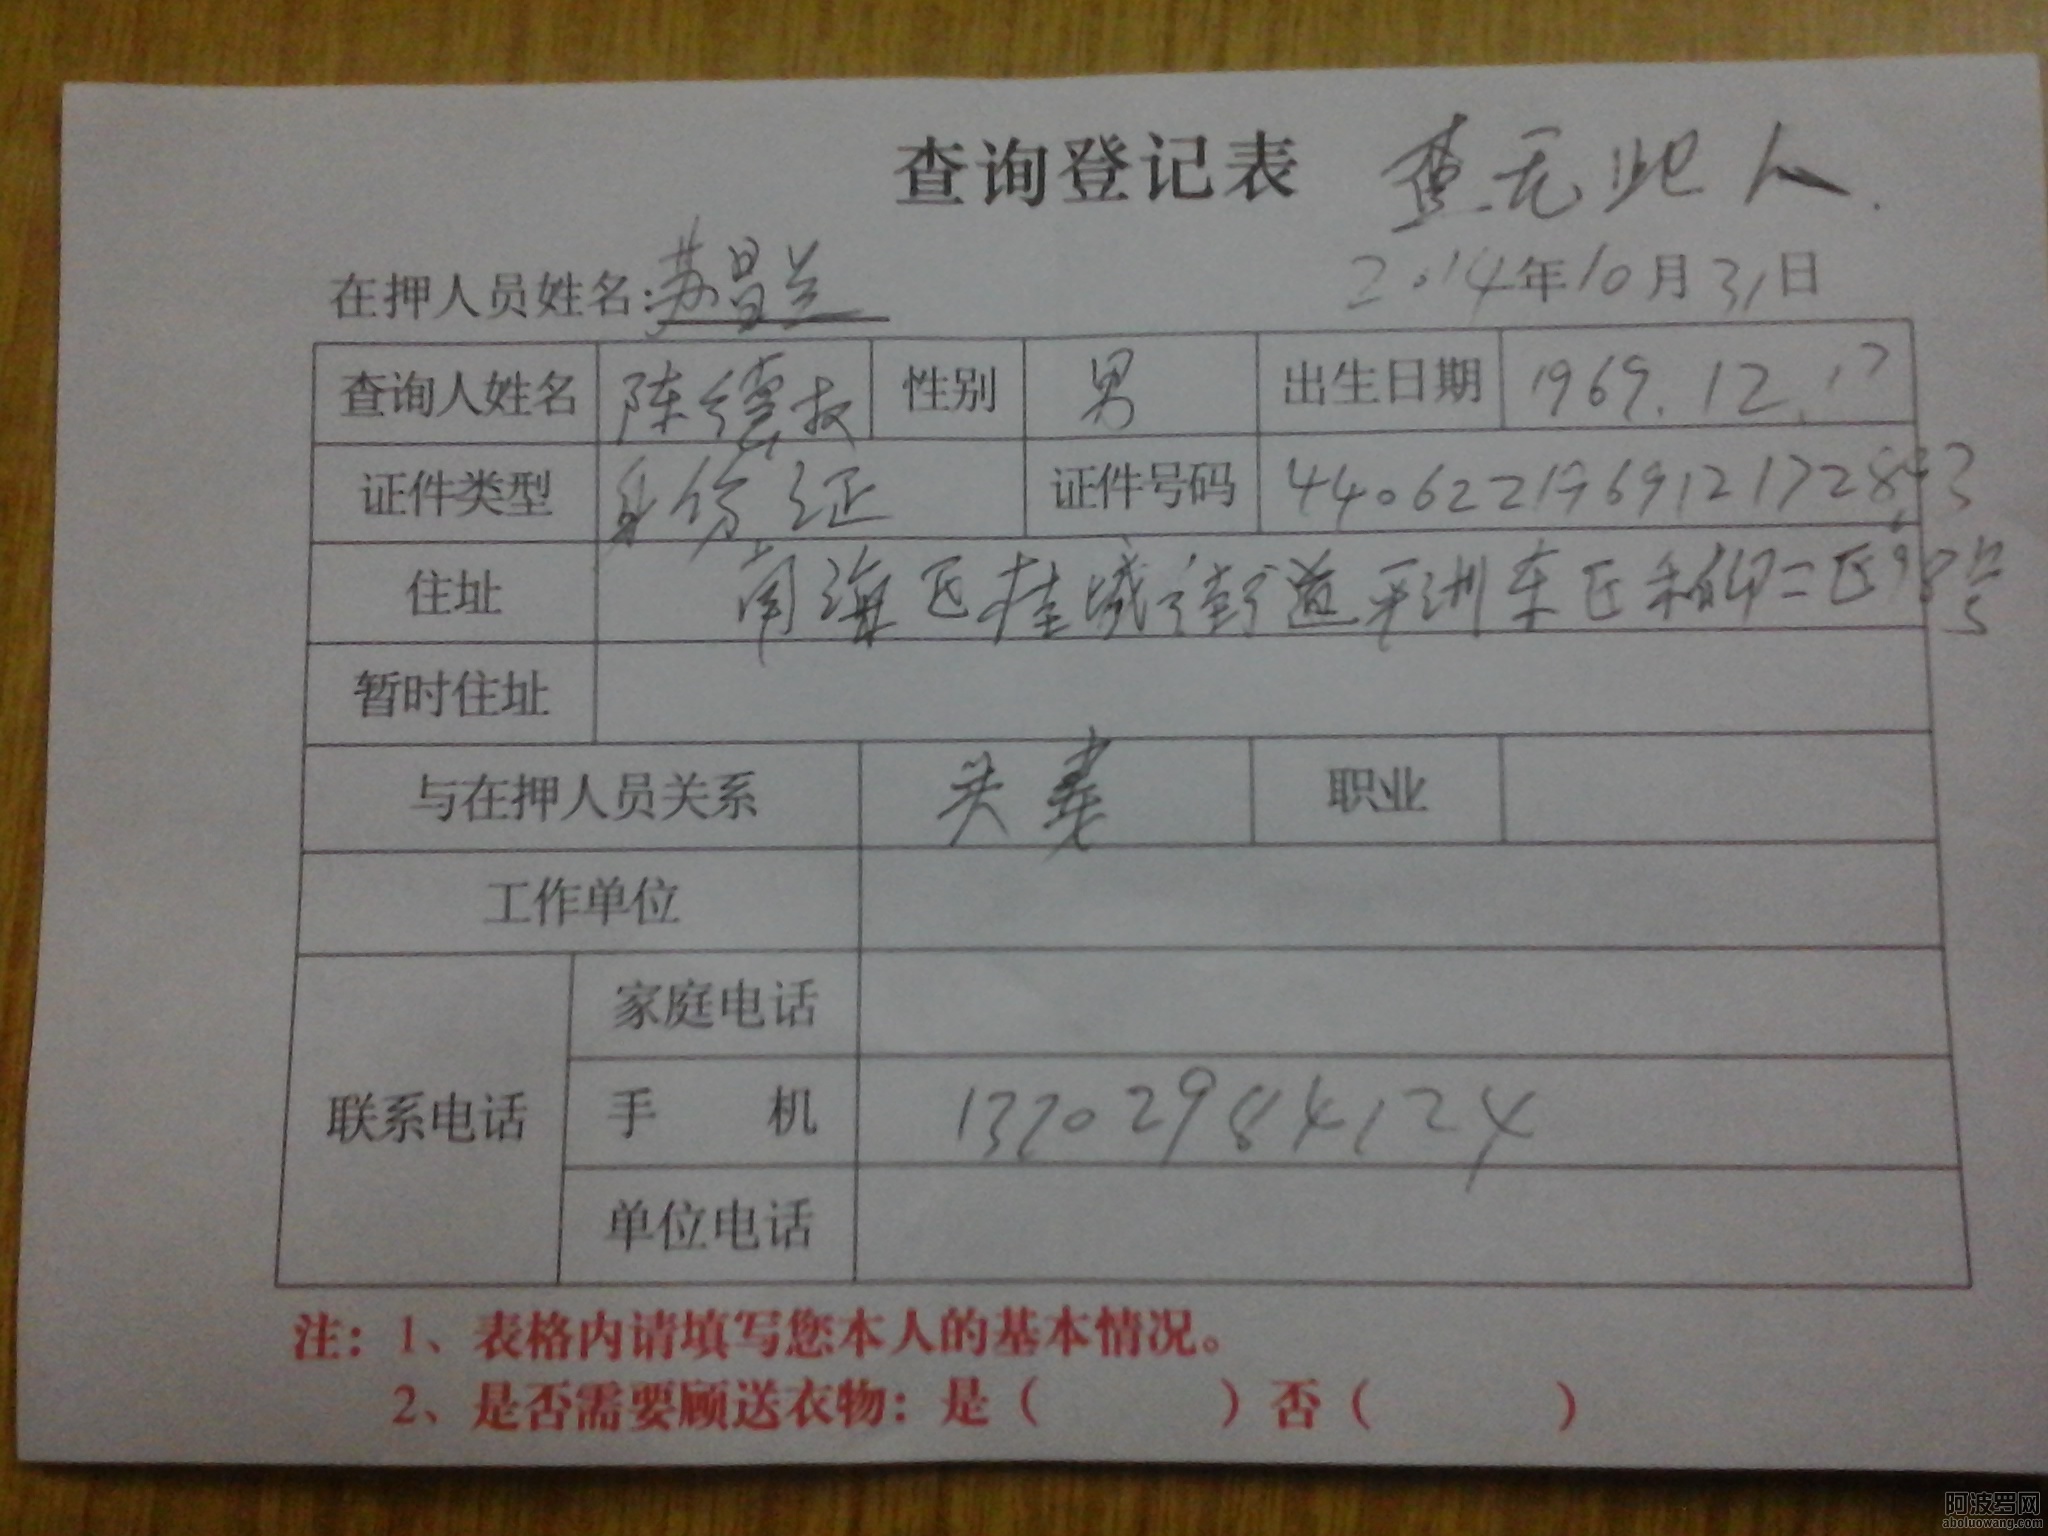 查询登记表 查无此人.
在押人员姓名:苏昌兰 2014年10月31日
查询人姓名 陈德权 性别 男 出生日期 1969.12.17
证件类型 身份证 证件号码
住址 南海区桂城街道平洲东区 二区
暂时住址
与在押人员关系 职业
工作单位
联系电话
家庭电话
手 机 13702984124
单位电话
注：1、表格内请填写您本人的基本情况。
2、是否需要顾送衣物：是（ ）否（ ）
阿波罗网
aboluowang.com